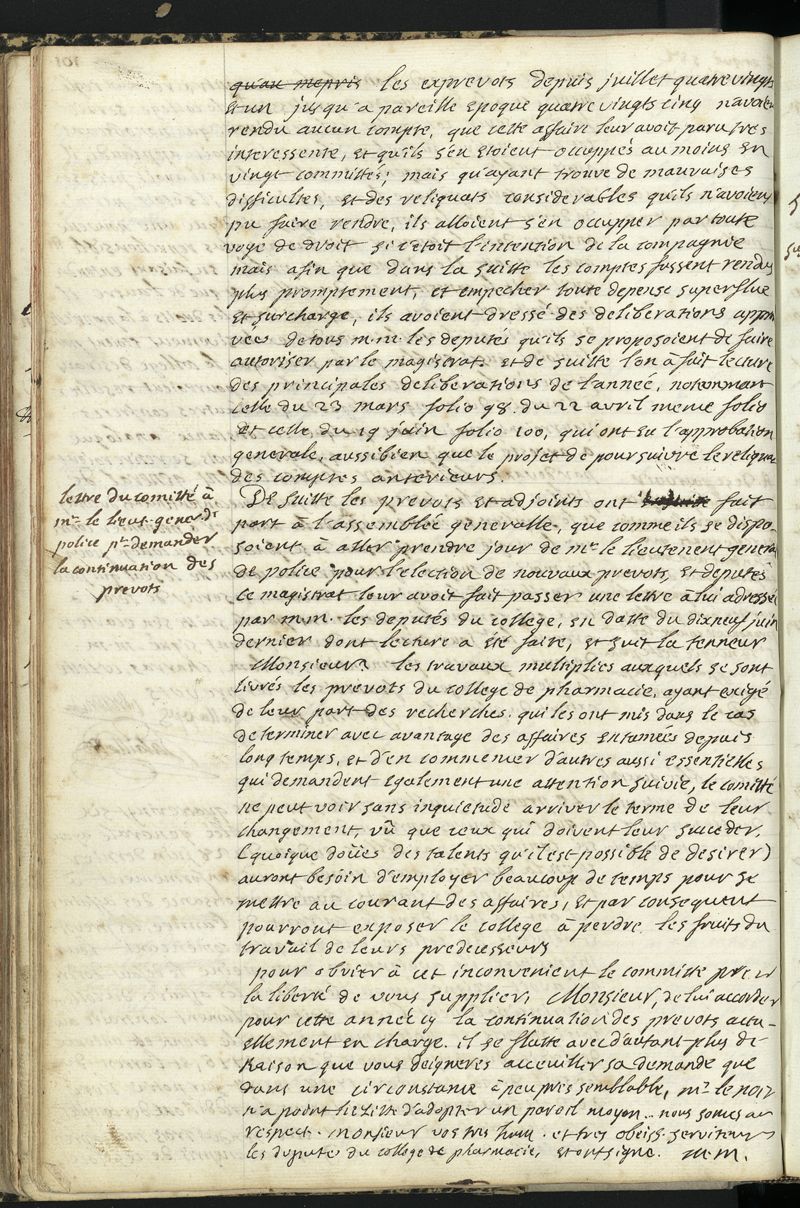 qu'au mepris les exprevots depuis juillet quatre vingts
Et un jusqu'a pareille Epoque quatre vingts cinq n'avoient
rendu aucun compte, que cette affaire leur avoit paru tres
interessente, Et quils s'en Etoient occuppés au moins En
vingt committés; mais qu'ayant trouvé de mauvaises
difficultes, Et des reliquats considerables quils n'avoient
pu faire rendre, ils alloient s'en occupper par toute
voye de droit si c'etoit l'intention de la compagnie
mais afin que dans la suitte les comptes fussent rendus
plus promptement, et empecher toute depense superflue
Et surcharge, ils avoient dressé des deliberations appro
vées de tous m.m. les deputés qu'ils se proposoient de faire
autoriser par le magistrat. et de suitte l'on à fait lecture
des principales deliberations de l'année, notemment
celle du 23 mars folio 98. du 22 avril meme folio
et celle du 19 juin folio 100, qui ont Eu l'approbation
generale, aussi bien que le projet de poursuivre le reliquat
des comptes anterieurs.
lettre du comitté à
mr. le lieut. gener. d.
police pr. demander
la continuation des
prevots
De suitte les prevots Et adjoints ont fait
part à l'assemblée generalle, que comme ils se dispo-
soient à aller prendre jour de mr. le lieutenent general
de police pour l'election de nouvaux prevots, Et deputés
ce magistrat leur avoit fait passer une lettre à lui adressée
par m.m. les deputés du college, en datte du dixneuf juin
dernier dont lecture a été faite, Et suit la tenneur
Monsieur les travaux multipliés auxquels se sont
livrés les prevots du college de pharmacie, ayant exigé
de leur part des recherches qui les ont mis dans le cas
de terminer avec avantage des affaires Entamées depuis
long temps, et d'en commencer d'autres aussi essentielles
qui demandent egalement une attention suivie, le comitté
ne peut voir sans inquietude arriver le terme de leur
changement, vû que ceux qui doivent leur succeder,
(quoique doüés des talents qu'il est possible de desirer)
auront besoin d'employer beaucoup de temps pour se
mettre au courant des affaires, Et par consequent
pourront exposer le college à perdre les fruits du
travail de leurs predecesseurs
pour obvier à cet inconvenient le committé prend
la liberté de vous supplier, Monsieur, de lui accorder
pour cette année cy la continuation des prevots actu-
ellement en charge. il se flatte avec d'autant plus de
Raison que vous deigneres acceuiller sa demande que
dans une circonstance à peu pres semblable, mr. le noir
n'a point hezitté d'adopter un pareil moyen. nous somes au
respect. monsieur vos tres hum. et tres obeiss. serviteurs
les deputés du college de pharmacie, Et ont signe. m.m.